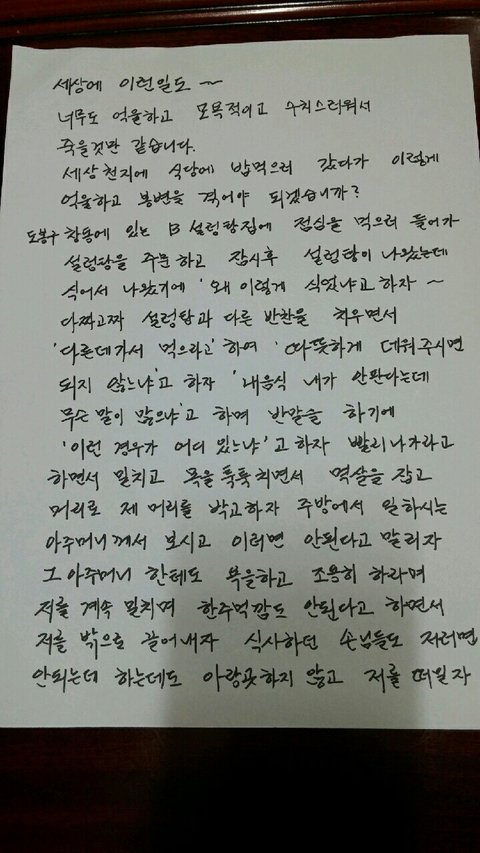 세상에 이런일도 ~
너무도 억울하고 모욕적이고 수치스러워서
죽을것만 같습니다.
세상천지에 식당에 밥먹으러 갔다가 이렇게
억울하고 봉변을 격어야 되겠습니까?
도봉구 창동에 있는 B 설렁탕집에 점심을 먹으러 들어가
설렁탕을 주문하고 잠시후 설렁탕이 나왔는데
식어서 나왔기에 '왜 이렇게 식었냐고 하자 ~
다짜고짜 설렁탕과 다른 반찬을 치우면서
'다른데가서 먹으라고' 하여 '따뜻하게 데워주시면
되지 않느냐'고 하자 '내음식 내가 안판다는데
무슨 말이 많으냐'고 하며 반말을 하기에
'이런 경우가 어디 있느냐'고 하자 빨리나가라고
하면서 밀치고 목을 툭툭치면서 멱살을 잡고
머리로 제 머리를 박고하자 주방에서 일하시는
아주머니께서 보시고 이러면 안된다고 말리자
그 아주머니 한테도 욕을하고 조용히 하라며
저를 계속 밀치며 한주먹깜도 안된다고 하면서
저를 밖으로 끌어내자 식사하던 손님들도 저러면
안되는데 하는데도 아랑곳하지 않고 저를 떠밀자